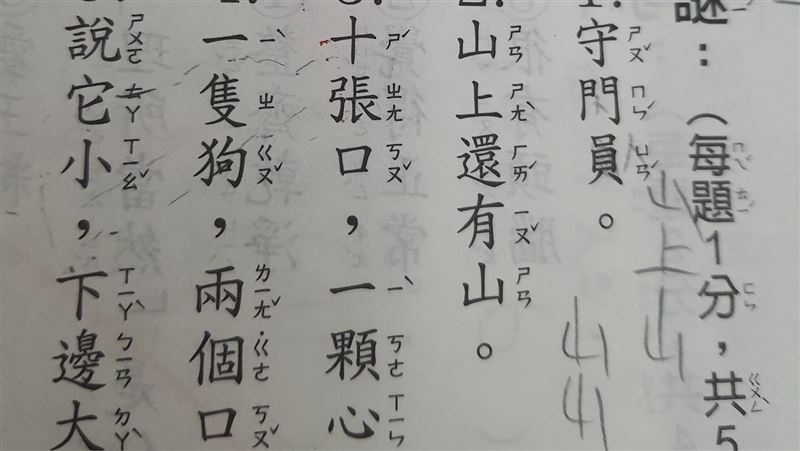 謎：（每題1分，共5
山上山
山山
1.守門員。
2.山上還有山。
十張口，一顆心
一隻狗，兩個口
說它小，下邊大